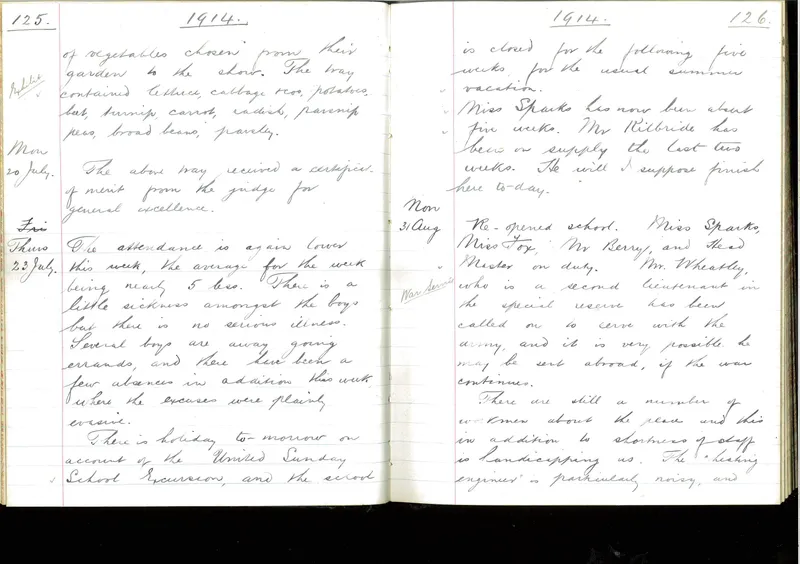 125.
1914.
of vegetables chosen from their
garden to the show. The tray
contained lettuce, cabbage, cos, potatoes,
beet, turnip, carrot, radish, parsnip
peas, broad beans, parsley.
Mon
20 July.
The above tray received a certificate
of merit from the judge for
general excellence.
Fri
Thurs
23 July.
The attendance is again lower
this week, the average for the week
being nearly 5 less. There is a
little sickness amongst the boys
but there is no serious illness.
Several boys are away going
errands, and there have been a
few absences in addition this week
where the excuses were plainly
evasive.
There is holiday to-morrow on
account of the United Sunday
School Excursion, and the school
1914.
126.
is closed for the following five
weeks for the usual summer
vacation.
Miss Sparks has now been absent
five weeks. Mr Kilbride has
been on supply the last two
weeks. He will I suppose finish
here to-day.
Mon
31 Aug
Re-opened school. Miss Sparks,
Miss Fox, Mr Berry, and Head
Master on duty. Mr. Wheatley,
War Service
who is a second lieutenant in
the special reserve has been
called on to serve with the
army, and it is very possible he
may be sent abroad, if the war
continues.
There are still a number of
workmen about the place and this
in addition to shortness of staff
is handicapping us. The "heating
engineer" is particularly noisy, and